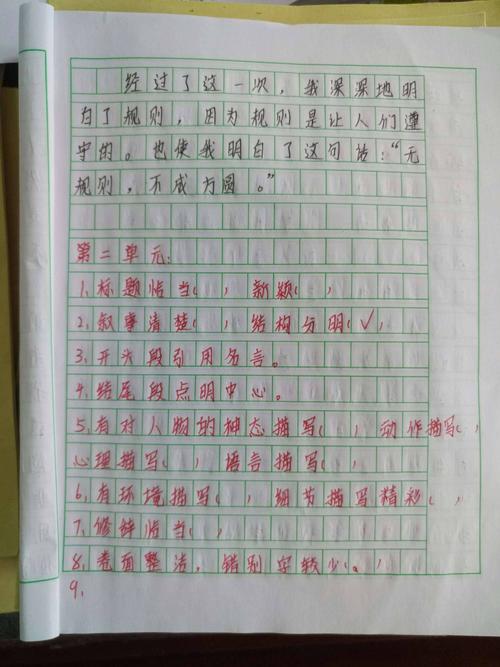 经过了这一次，我深深地明
白了规则，因为规则是让人们遵
守的。也使我明白了这句话：“无
规则，不成方圆。”
第二单元：
1、标题恰当（ ）, 新颖（ ）,
2、叙事清楚（ ）, 结构分明（√）,
3、开头段引用名言。
4、结尾段点明中心。
5、有对人物的神态描写（ ）, 动作描写（ ）,
心理描写（ ）, 语言描写（ ）,
6、有环境描写（ ）, 细节描写精彩（ ）,
7、修辞恰当（ ）,
8、卷面整洁，错别字较少。（ ）
9、